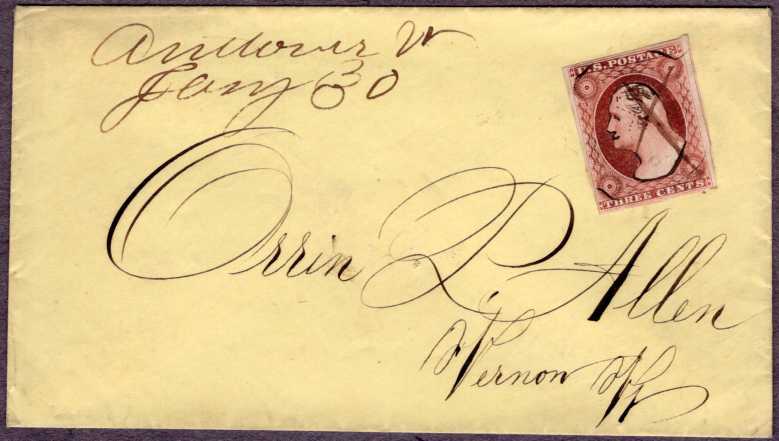 Andover Vt
Jany 30
U.S. POSTAGE
THREE CENTS
Orrin P. Allen
Vernon